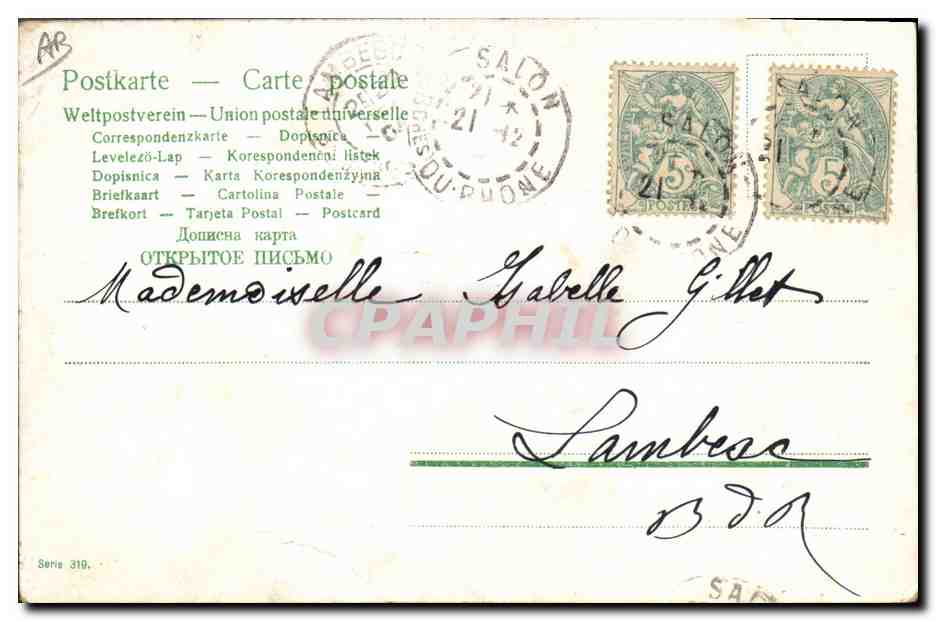 AB
Postkarte — Carte postale
Weltpostverein — Union postale universelle
Correspondenzkarte — Dopisnice —
Levelező-Lap — Korespondenční listek
Dopisnica — Karta Korespondenzyjna
Briefkaart — Cartolina Postale —
Brefkort — Tarjeta Postal — Postcard
Дописна карта
ОТКРЫТОЕ ПИСЬМО
SALON
21 12
DU-RHONE
SALON
21
5
POSTES
5
Mademoiselle Isabelle Gillet
CPAPHIL
Lambesc
B d. R
Serie 319.
SAL